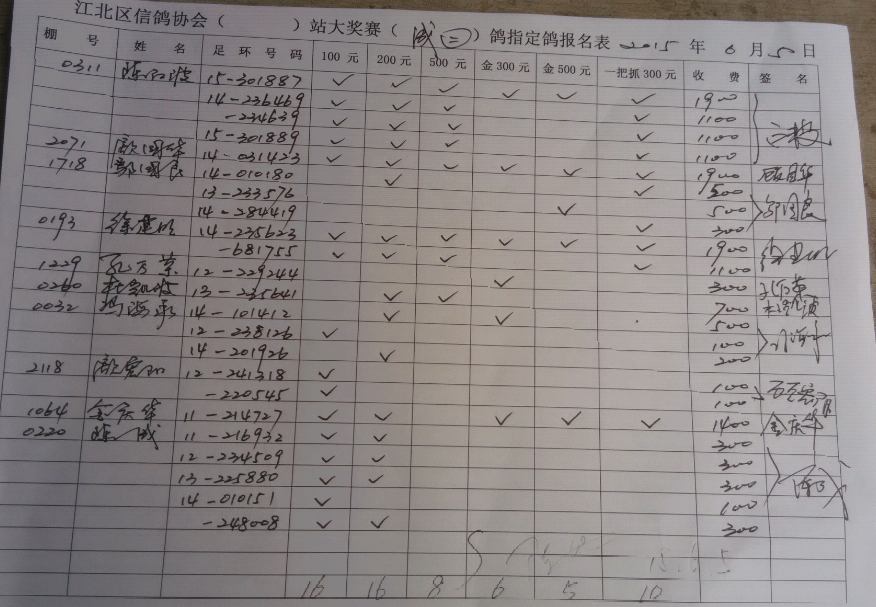 江北区信鸽协会（ ）站大奖赛（成二）鸽指定鸽报名表 2015 年 6 月 5 日
棚 号 姓 名 足 环 号 码 100 元 200 元 500 元 金 300 元 金 500 元 一把抓 300 元 收 费 签 名
0311 15-301887 ✓ ✓ ✓ ✓ ✓ ✓ 1900
14-236469 ✓ ✓ ✓ ✓ 1100
-234639 ✓ ✓ ✓ ✓ 1100
15-301889 ✓ ✓ ✓ ✓ 1100
2071 顾国华 14-031423 ✓ ✓ ✓ ✓ ✓ ✓ 1900 顾国华
1718 郭国良 14-010180 ✓ ✓ 500
13-233576
14-284419 ✓ 500
0193 徐建明 14-235623 ✓ ✓ ✓ ✓ ✓ ✓ 1900
-681755 ✓ ✓ ✓ ✓ 1100
1229 12-229244 ✓ 300
0260 13-235641 ✓ ✓ 700
0032 14-101412 ✓ ✓ 500
12-238126 ✓ 100
14-201926 ✓ 200
2118 12-241318 ✓ 100
-220545 ✓ 100
1064 金庆华 11-214727 ✓ ✓ ✓ ✓ ✓ 1400 金庆华
0220 陈成 11-216932 ✓ ✓ 300
12-234509 ✓ ✓ 300
13-225880 ✓ ✓ 300
14-010151 ✓ 100
-248008 ✓ ✓ 300
15.6.5
16 16 8 6 5 10